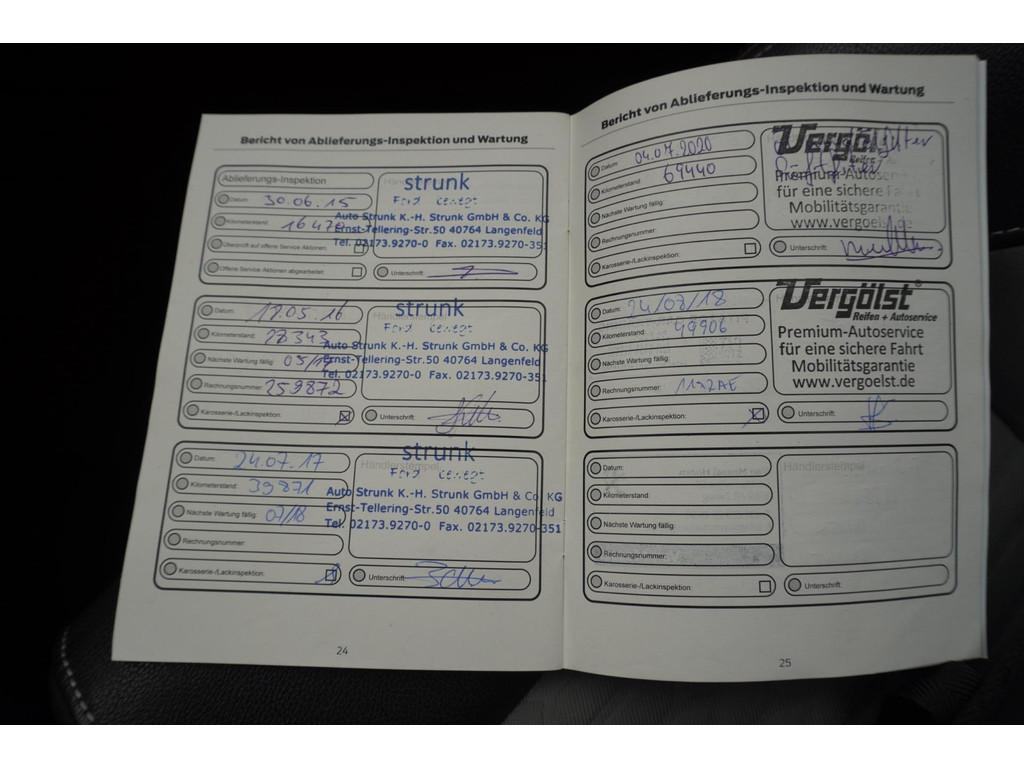 Bericht von Ablieferungs-Inspektion und Wartung
Ablieferungs-Inspektion
Datum: 30.06.15
Kilometerstand: 16470
Überprüft auf offene Service Aktionen:
Offene Service Aktionen abgearbeitet:
strunk
Ford
Auto Strunk K.-H. Strunk GmbH & Co. KG
Ernst-Tellering-Str.50 40764 Langenfeld
Tel. 02173.9270-0 Fax. 02173.9270-351
Unterschrift:
Datum: 17.05.16
Kilometerstand: 28343
Nächste Wartung fällig: 05/18
Rechnungsnummer: 259872
Karosserie-/Lackinspektion:
strunk
Ford
Auto Strunk K.-H. Strunk GmbH & Co. KG
Ernst-Tellering-Str.50 40764 Langenfeld
Tel. 02173.9270-0 Fax. 02173.9270-351
Unterschrift:
Datum: 24.07.17
Kilometerstand: 39871
Nächste Wartung fällig: 07/18
Rechnungsnummer:
Karosserie-/Lackinspektion:
Händlerstempel
strunk
Ford
Auto Strunk K.-H. Strunk GmbH & Co. KG
Ernst-Tellering-Str.50 40764 Langenfeld
Tel. 02173.9270-0 Fax. 02173.9270-351
Unterschrift:
24
Bericht von Ablieferungs-Inspektion und Wartung
Datum: 04.07.2020
Kilometerstand: 69440
Nächste Wartung fällig:
Rechnungsnummer:
Karosserie-/Lackinspektion:
Vergölst
Reifen +
Premium-Autoser
für eine sichere Fa
Mobilitätsgarantie
www.vergoelst.de
Unterschrift:
Datum: 24/08/18
Kilometerstand: 49906
Nächste Wartung fällig:
Rechnungsnummer: 11x2AE
Karosserie-/Lackinspektion:
Vergölst
Reifen + Autoservice
Premium-Autoservice
für eine sichere Fahrt
Mobilitätsgarantie
www.vergoelst.de
Unterschrift:
Datum:
Kilometerstand:
Nächste Wartung fällig:
Rechnungsnummer:
Karosserie-/Lackinspektion:
Händlerstempel
Unterschrift:
25